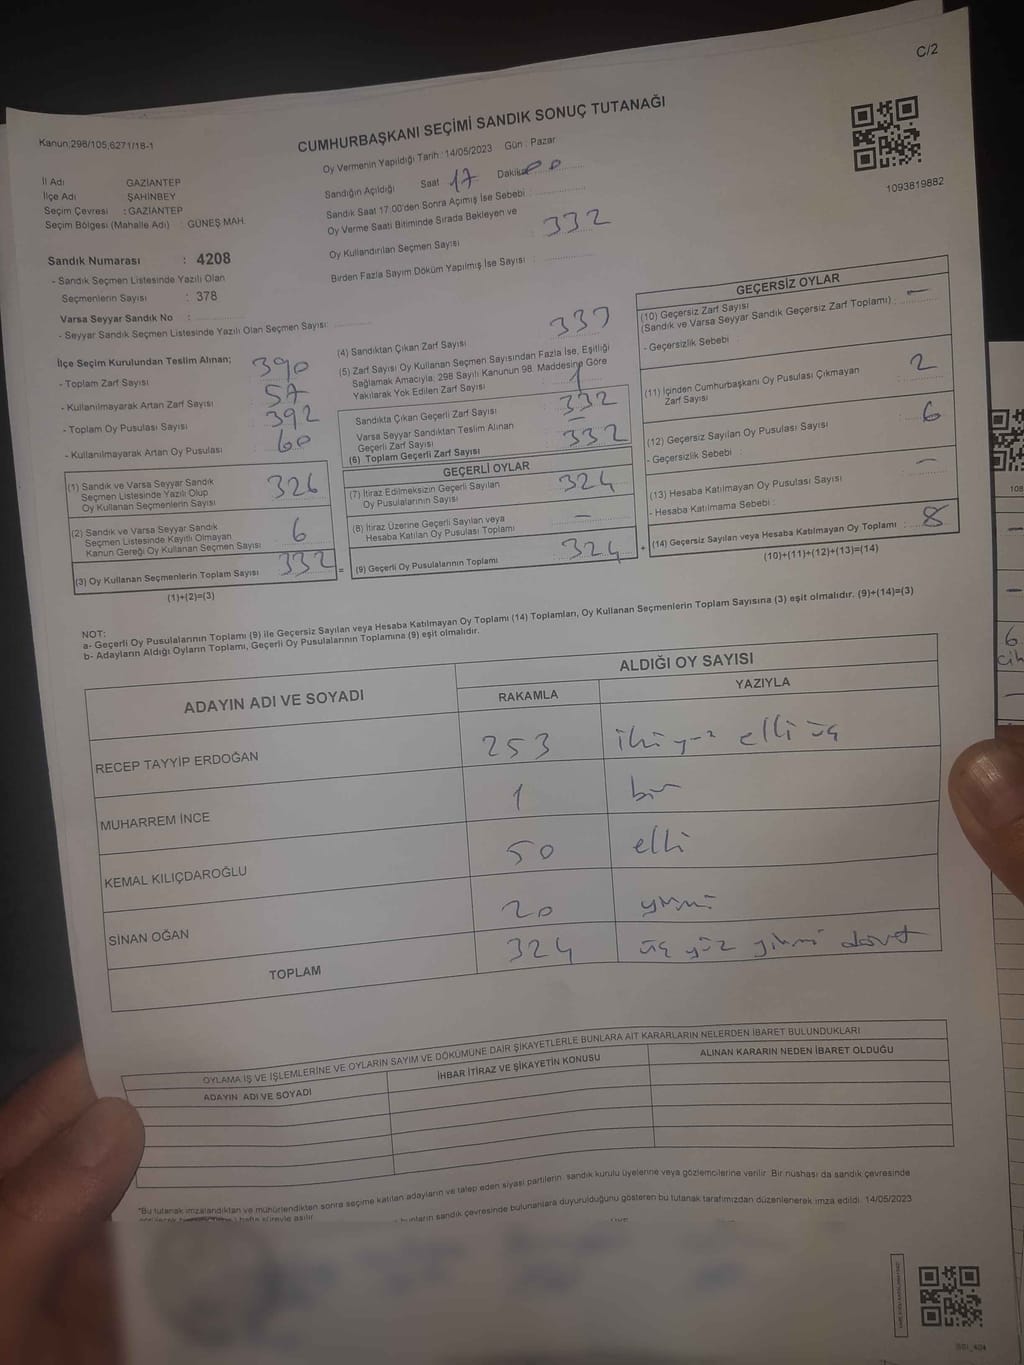 C/2
Kanun;298/105;6271/18-1
CUMHURBAŞKANI SEÇİMİ SANDIK SONUÇ TUTANAĞI
Oy Vermenin Yapıldığı Tarih : 14/05/2023 Gün : Pazar
1093819882
İl Adı GAZİANTEP
İlçe Adı ŞAHİNBEY
Seçim Çevresi : GAZİANTEP
Seçim Bölgesi (Mahalle Adı) : GÜNEŞ MAH.
Sandığın Açıldığı Saat 17 Dakika 00
Sandık Saat 17:00'den Sonra Açımış İse Sebebi :
Oy Verme Saati Bitiminde Sırada Bekleyen ve
Oy Kullandırılan Seçmen Sayısı 332
Birden Fazla Sayım Döküm Yapılmış İse Sayısı :
Sandık Numarası : 4208
- Sandık Seçmen Listesinde Yazılı Olan
Seçmenlerin Sayısı : 378
Varsa Seyyar Sandık No :
- Seyyar Sandık Seçmen Listesinde Yazılı Olan Seçmen Sayısı:
İlçe Seçim Kurulundan Teslim Alınan;
- Toplam Zarf Sayısı 390
- Kullanılmayarak Artan Zarf Sayısı 57
- Toplam Oy Pusulası Sayısı 392
- Kullanılmayarak Artan Oy Pusulası 60
(1) Sandık ve Varsa Seyyar Sandık
Seçmen Listesinde Yazılı Olup
Oy Kullanan Seçmenlerin Sayısı 326
(2) Sandık ve Varsa Seyyar Sandık
Seçmen Listesinde Kayıtlı Olmayan
Kanun Gereği Oy Kullanan Seçmen Sayısı 6
(3) Oy Kullanan Seçmenlerin Toplam Sayısı 332
(1)+(2)=(3)
(4) Sandıktan Çıkan Zarf Sayısı 333
(5) Zarf Sayısı Oy Kullanan Seçmen Sayısından Fazla İse, Eşitliği
Sağlamak Amacıyla, 298 Sayılı Kanunun 98. Maddesine Göre
Yakılarak Yok Edilen Zarf Sayısı 1
Sandıkta Çıkan Geçerli Zarf Sayısı 332
Varsa Seyyar Sandıktan Teslim Alınan
Geçerli Zarf Sayısı –
(6) Toplam Geçerli Zarf Sayısı 332
GEÇERLİ OYLAR
(7) İtiraz Edilmeksizin Geçerli Sayılan
Oy Pusulalarının Sayısı 324
(8) İtiraz Üzerine Geçerli Sayılan veya
Hesaba Katılan Oy Pusulası Toplamı –
= (9) Geçerli Oy Pusulalarının Toplamı 324 +
GEÇERSİZ OYLAR
(10) Geçersiz Zarf Sayısı
(Sandık ve Varsa Seyyar Sandık Geçersiz Zarf Toplamı) : –
- Geçersizlik Sebebi :
(11) İçinden Cumhurbaşkanı Oy Pusulası Çıkmayan
Zarf Sayısı 2
(12) Geçersiz Sayılan Oy Pusulası Sayısı 6
- Geçersizlik Sebebi :
(13) Hesaba Katılmayan Oy Pusulası Sayısı –
- Hesaba Katılmama Sebebi :
(14) Geçersiz Sayılan veya Hesaba Katılmayan Oy Toplamı : 8
(10)+(11)+(12)+(13)=(14)
NOT:
a- Geçerli Oy Pusulalarının Toplamı (9) ile Geçersiz Sayılan veya Hesaba Katılmayan Oy Toplamı (14) Toplamları, Oy Kullanan Seçmenlerin Toplam Sayısına (3) eşit olmalıdır. (9)+(14)=(3)
b- Adayların Aldığı Oyların Toplamı, Geçerli Oy Pusulalarının Toplamına (9) eşit olmalıdır.
ADAYIN ADI VE SOYADI ALDIĞI OY SAYISI
RAKAMLA YAZIYLA
RECEP TAYYİP ERDOĞAN 253 iki yüz elli üç
MUHARREM İNCE 1 bir
KEMAL KILIÇDAROĞLU 50 elli
SİNAN OĞAN 20 yirmi
TOPLAM 324 üç yüz yirmi dört
OYLAMA İŞ VE İŞLEMLERİNE VE OYLARIN SAYIM VE DÖKÜMÜNE DAİR ŞİKAYETLERLE BUNLARA AİT KARARLARIN NELERDEN İBARET BULUNDUKLARI
ADAYIN ADI VE SOYADI İHBAR İTİRAZ VE ŞİKAYETİN KONUSU ALINAN KARARIN NEDEN İBARET OLDUĞU
*Bu tutanak imzalandıktan ve mühürlendikten sonra seçime katılan adayların ve talep eden siyasi partilerin, sandık kurulu üyelerine veya gözlemcilerine verilir. Bir nüshası da sandık çevresinde
bunların sandık çevresinde bulunanlara duyurulduğunu gösteren bu tutanak tarafımızdan düzenlenerek imza edildi. 14/05/2023
108
6
cih